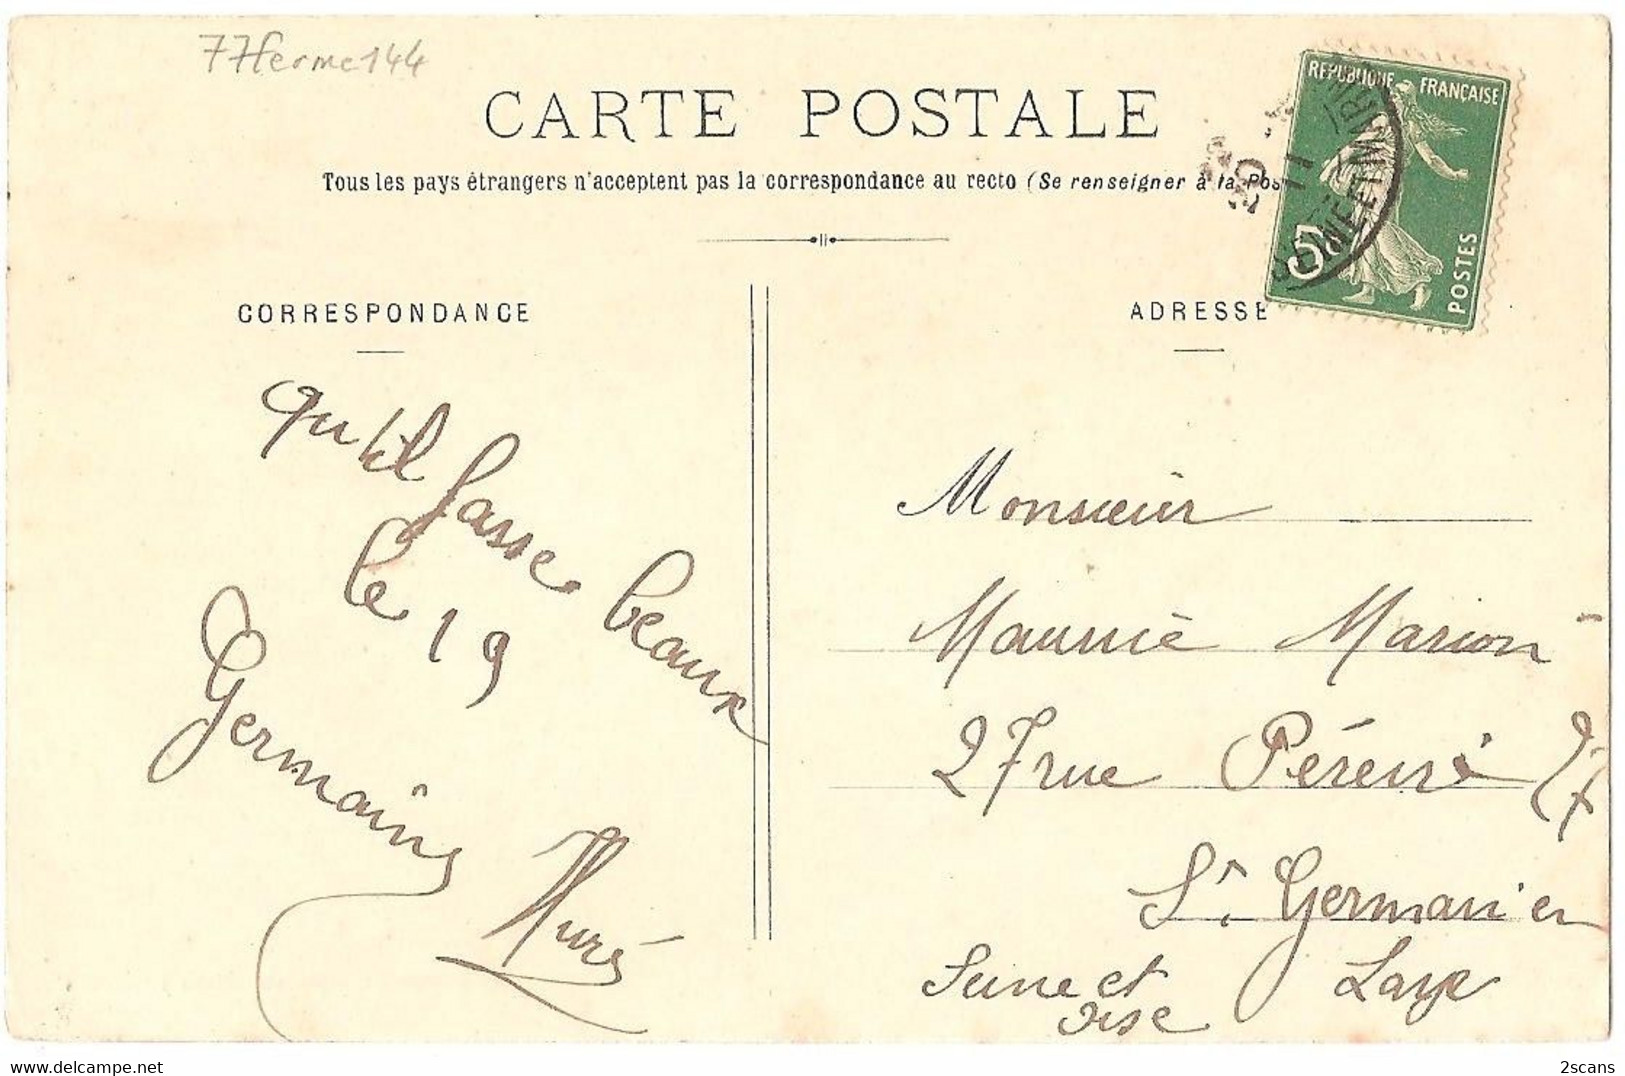 77ferme144
CARTE POSTALE
Tous les pays étrangers n'acceptent pas la correspondance au recto (Se renseigner à la Pos
REPUBLIQUE FRANÇAISE
POSTES
5
11
SEINE ET MARNE
CORRESPONDANCE
ADRESSE
qu'il fasse beaux
le 19
Germain
Muré
Monsieur
Maurice Marion
27 rue Péreire 27
St Germain en
Laye
Seine et
Oise
2scans